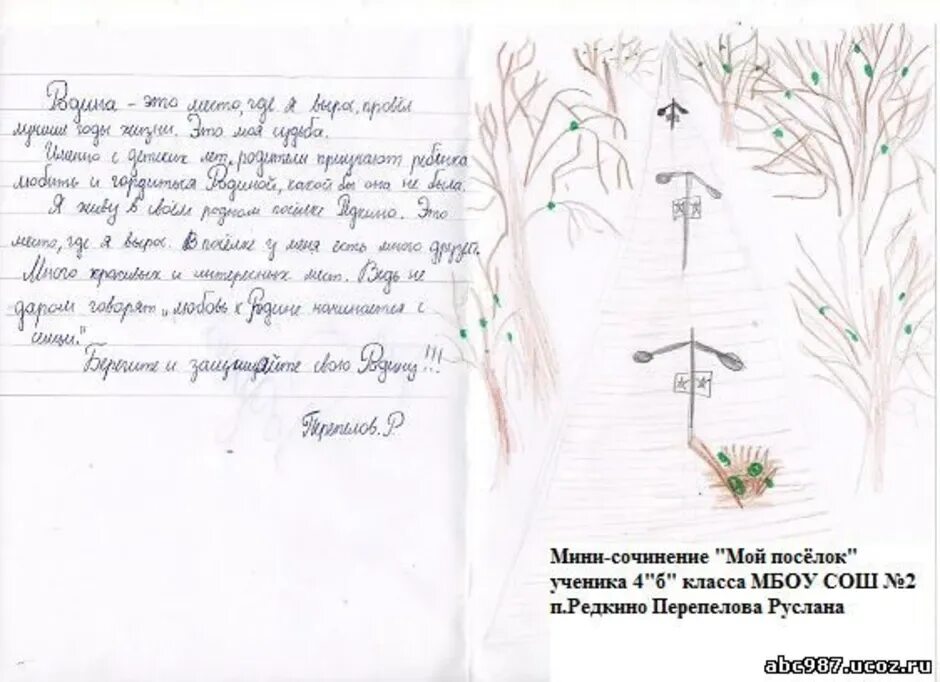 Родина - это место, где я вырос, провёл
лучшие годы жизни. Это моя судьба.
Именно с детских лет, родители приучают ребёнка
любить и гордиться Родиной, какой бы она не была.
Я живу в своём родном посёлке Редкино. Это
место, где я вырос. В посёлке у меня есть много друзей.
Много красивых и интересных мест. Ведь не
даром говорят „любовь к Родине начинается с
семьи."
Берегите и защищайте свою Родину!!!
Перепелов. Р
Мини-сочинение "Мой посёлок"
ученика 4"б" класса МБОУ СОШ №2
п.Редкино Перепелова Руслана
abc987.ucoz.ru